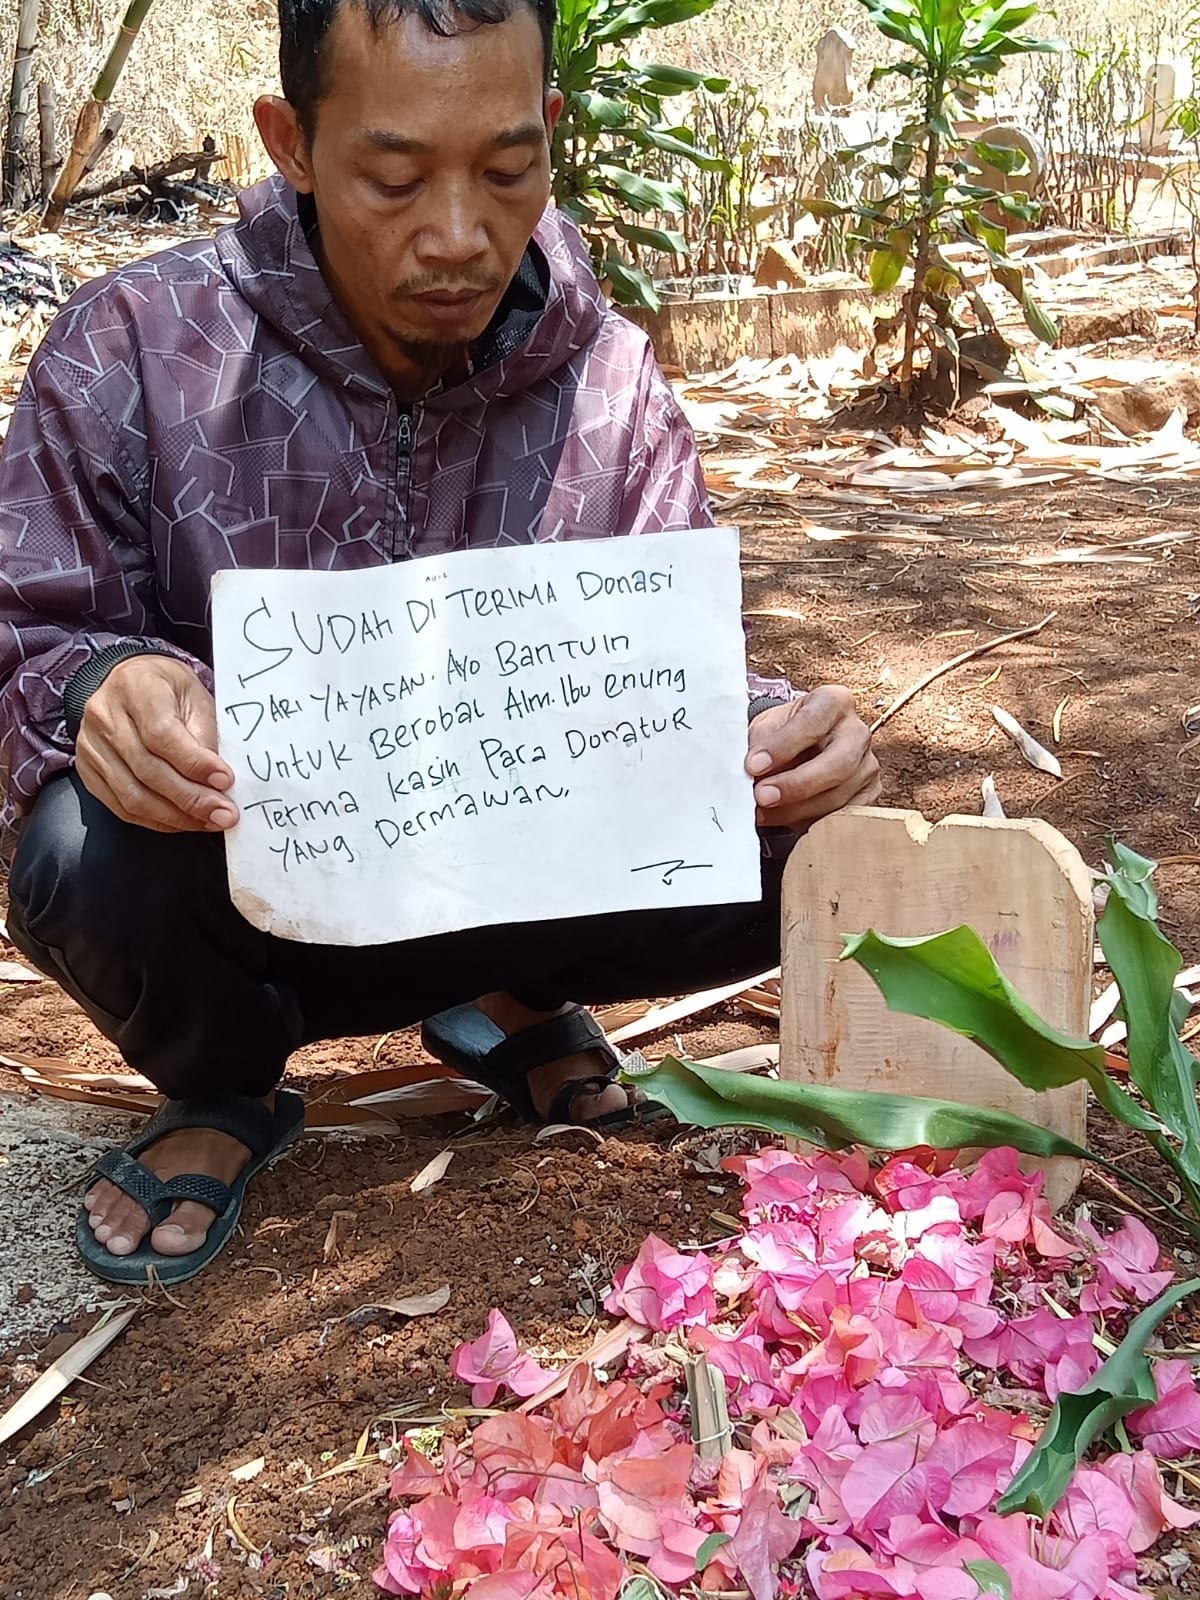 SUDAH DI TERIMA Donasi
DARI YAYASAN. Ayo BanTuin
UnTuK Berobat Alm. Ibu enung
Terima kasih Para Donatur
YANG Dermawan.